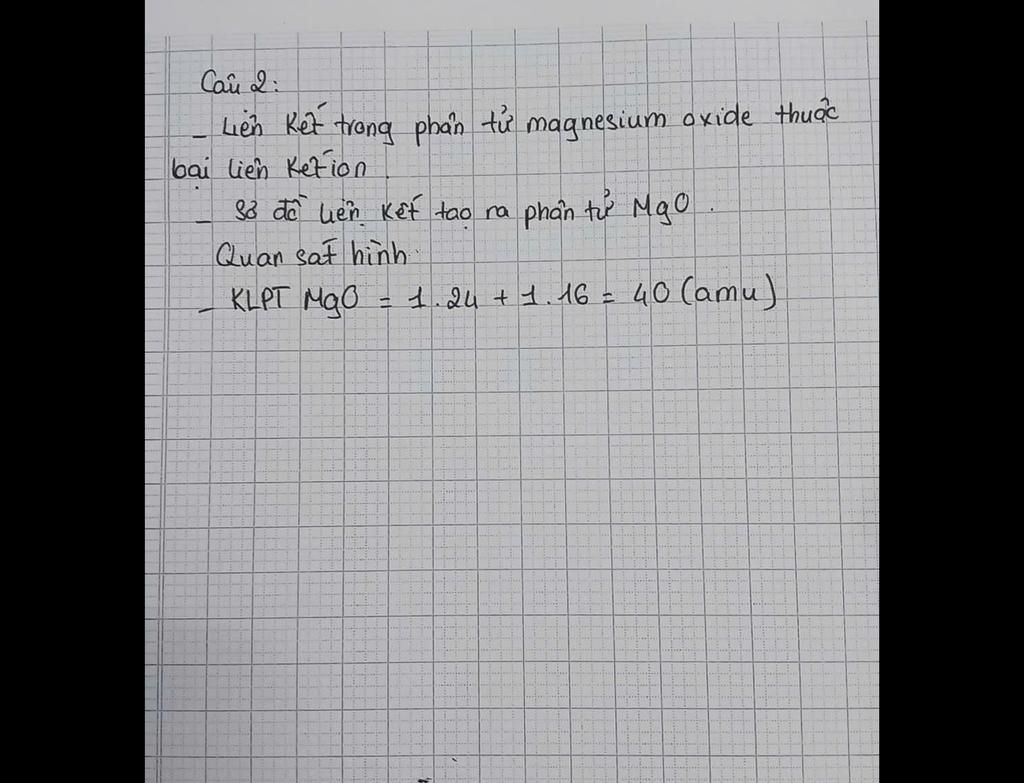 Câu 2:
- Liên kết trong phân tử magnesium oxide thuộc
loại liên kết ion.
- Sơ đồ liên kết tạo ra phân tử MgO.
Quan sát hình
- KLPT MgO = 1.24 + 1.16 = 40 (amu)